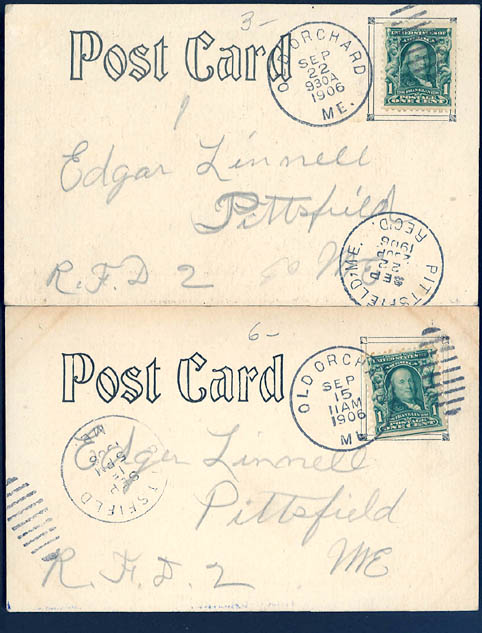 3-
Post Card
OLD ORCHARD
SEP
22
930A
1906
ME.
UNITED STATES OF AMERICA
1 1
POSTAGE
ONE CENT
1
Edgar Linnell
Pittsfield
ME
R.F.D 2
PITTSFIELD, ME.
SEP
22
1906
REC'D.
6-
Post Card
OLD ORCHARD
SEP
15
11AM
1906
ME
UNITED STATES OF AMERICA
1 1
POSTAGE
ONE CENT
PITTSFIELD
ME.
SEP
15
1906
Edgar Linnell
Pittsfield
ME
R.F.D. 2